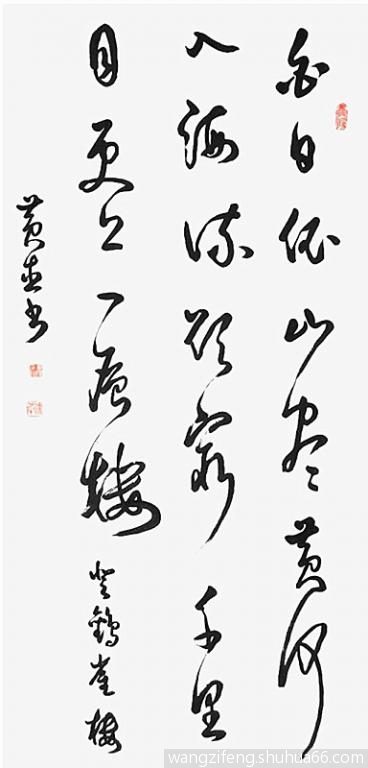 白日依山尽黄河
入海流欲穷千里
目更上一层楼 登鹳雀楼
黄书
wangzifeng.shuhua66.com